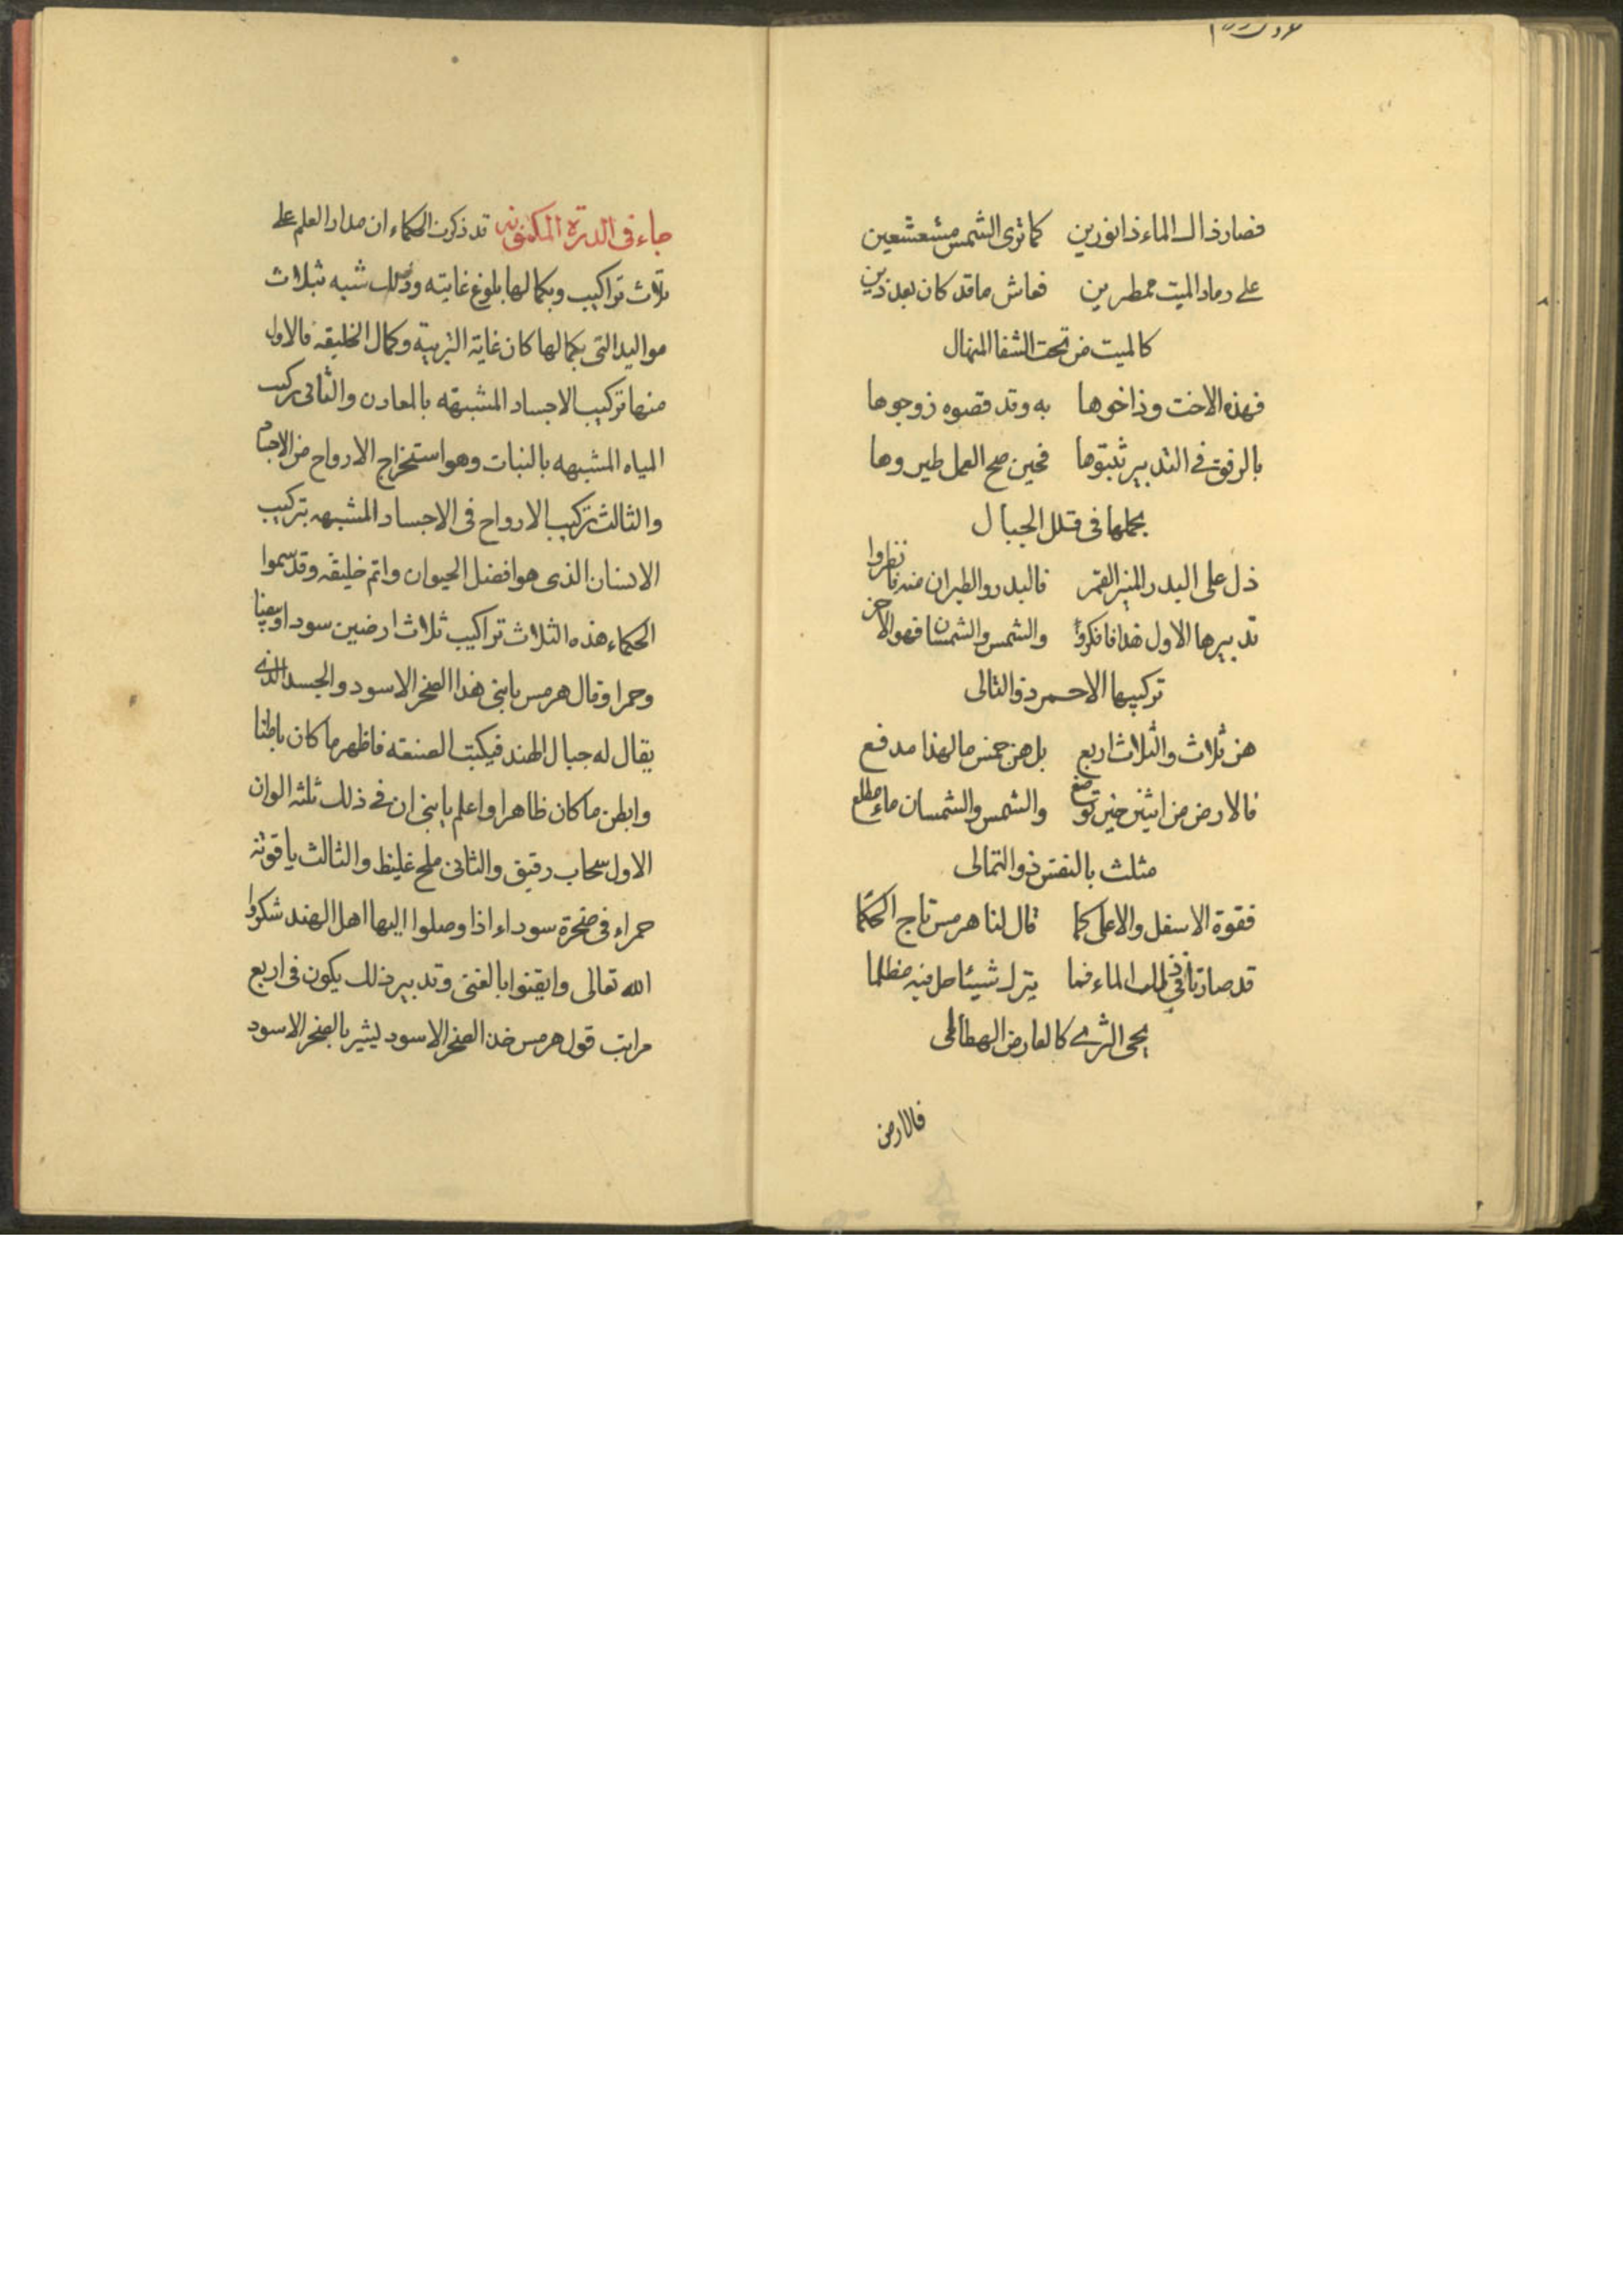 فصار ذاك الماء ذا نورين كما ترى الشمس مشعشعين
على رماد الميت ممطرين فعاش ما قد كان بعد ذين
كالميت من تحت الشفا المنهال
فهذه الاخت وذا اخوها به وقد قصوه زوجوها
بالرفق في التدبير ثبتوها فحين صح العمل طيروها
بحملها في قلل الجبال
ذل على البدر المنير القمر فالبدر والطيران منه فانظروا
تدبيرها الاول هذا فافكروا والشمس والشمسان فهو الاخر
تركيبها الاحمر ذو التالى
هن ثلاث والثلاث اربع بل هن خمس ما لهذا مدفع
فالارض من اثنين حين توضع والشمس والشمسان ماء مطلع
مثلث بالنفس ذو التمالى
فقوة الاسفل والاعلى كما قال لنا هرمس تاج الحكما
قد صارتا في ذلك الماء فما يترك شيئا حل فيه مظلما
يحى الثرى كالعارض الهطالى
فالارض
جاء في الدرة المكنونه قد ذكرت الحكماء ان مدار العلم على
ثلاث تراكيب وبكمالها بلوغ غايته وذلك شبه بثلاث
مواليد التى بكمالها كان غاية التربية وكمال الخليقه فالاول
منها تركيب الاجساد المشبهه بالمعادن والثانى تركيب
المياه المشبهه بالنبات وهو استخراج الارواح من الاجساد
والثالث تركيب الارواح فى الاجساد المشبهه بتركيب
الانسان الذى هو افضل الحيوان واتم خليقه وقد سموا
الحكماء هذه الثلاث تراكيب ثلاث ارضين سودا وبيضا
وحمرا وقال هرمس يا بنى هذا الصخر الاسود والجسد الذى
يقال له جبال الهند فيكبت الصنعه فاظهر ما كان باطنا
وابطن ما كان ظاهرا واعلم يا بنى ان في ذلك ثلثه الوان
الاول سحاب رقيق والثانى ملح غليظ والثالث ياقوته
حمراء فى صخرة سوداء اذا وصلوا اليها اهل الهند شكروا
الله تعالى وايقنوا بالغنى وتدبير ذلك يكون فى اربع
مراتب قول هرمس خذ الصخر الاسود ليشير بالصخر الاسود